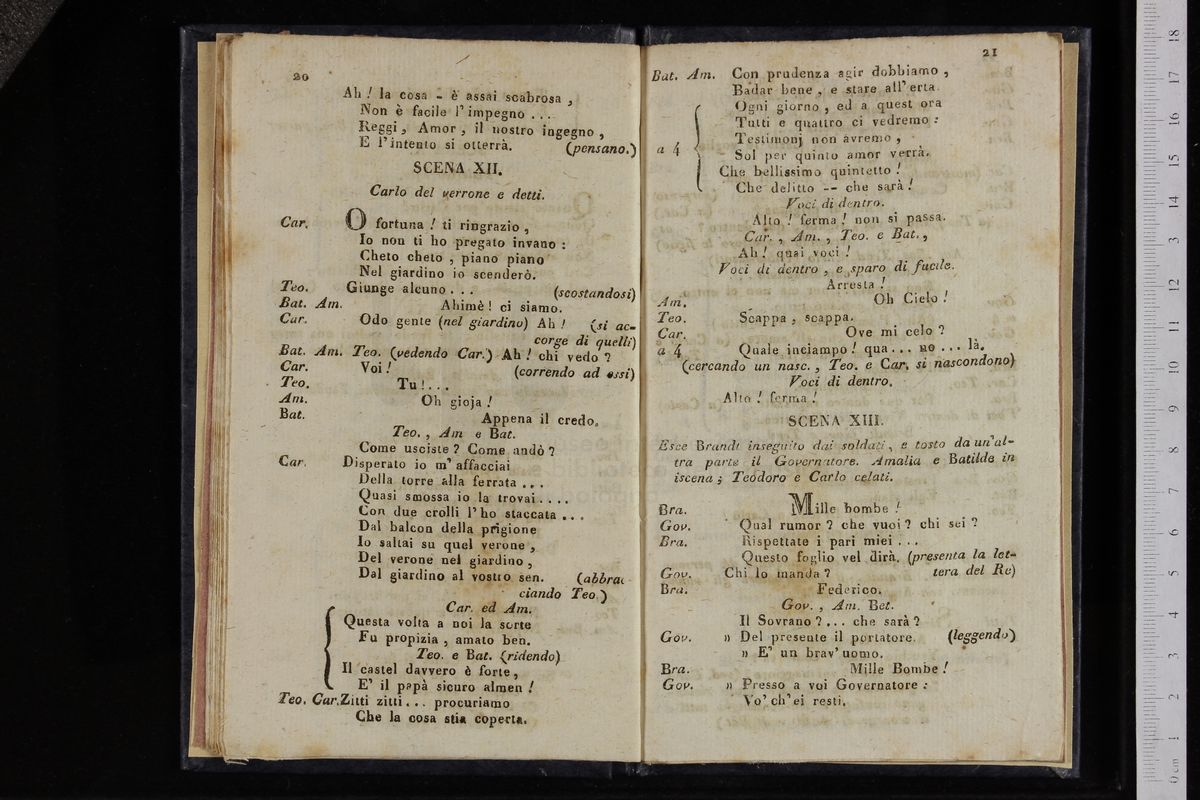 20
Ah! la cosa - è assai scabrosa,
Non è facile l'impegno...
Reggi, Amor, il nostro ingegno,
E l'intento si otterrà. (pensano.)
SCENA XII.
Carlo del verrone e detti.
Car. O fortuna! ti ringrazio,
Io non ti ho pregato invano:
Cheto cheto, piano piano
Nel giardino io scenderò.
Teo. Giunge alcuno... (scostandosi)
Bat. Am. Ahimè! ci siamo.
Car. Odo gente (nel giardino) Ah! (si ac-
corge di quelli)
Bat. Am. Teo. (vedendo Car.) Ah! chi vedo?
Car. Voi! (correndo ad essi)
Teo. Tu!...
Am. Oh gioja!
Bat. Appena il credo.
Teo., Am e Bat.
Come usciste? Come andò?
Car. Disperato io m'affacciai
Della torre alla ferrata...
Quasi smossa io la trovai....
Con due crolli l'ho staccata...
Dal balcon della prigione
Io saltai su quel verone,
Del verone nel giardino,
Dal giardino al vostro sen. (abbrac-
ciando Teo.)
Car. ed Am.
Questa volta a noi la sorte
Fu propizia, amato ben.
Teo. e Bat. (ridendo)
Il castel davvero è forte,
E' il papà sicuro almen!
Teo. Car. Zitti zitti... procuriamo
Che la cosa stia coperta.
21
Bat. Am. Con prudenza agir dobbiamo,
Badar bene, e stare all'erta.
Ogni giorno, ed a quest ora
Tutti e quattro ci vedremo:
Testimonj non avremo,
a 4 Sol per quinto amor verrà.
Che bellissimo quintetto!
Che delitto -- che sarà!
Voci di dentro.
Alto! ferma! non si passa.
Car., Am., Teo. e Bat.,
Ah! quai voci!
Voci di dentro, e sparo di fucile.
Arresta!
Am. Oh Cielo!
Teo. Scappa, scappa.
Car. Ove mi celo?
a 4 Quale inciampo! qua... no... là.
(cercando un nasc., Teo. e Car. si nascondono)
Voci di dentro.
Alto! ferma!
SCENA XIII.
Esce Brandt inseguito dai soldati, e tosto da un'al-
tra parte il Governatore. Amalia e Batilde in
iscena; Teodoro e Carlo celati.
Bra. Mille bombe!
Gov. Qual rumor? che vuoi? chi sei?
Bra. Rispettate i pari miei...
Questo foglio vel dirà. (presenta la let-
Gov. Chi lo manda? tera del Re)
Bra. Federico.
Gov., Am. Bet.
Il Sovrano?... che sarà?
Gov. » Del presente il portatore. (leggendo)
» E' un brav'uomo.
Bra. Mille Bombe!
Gov. » Presso a voi Governatore:
Vo' ch'ei resti.